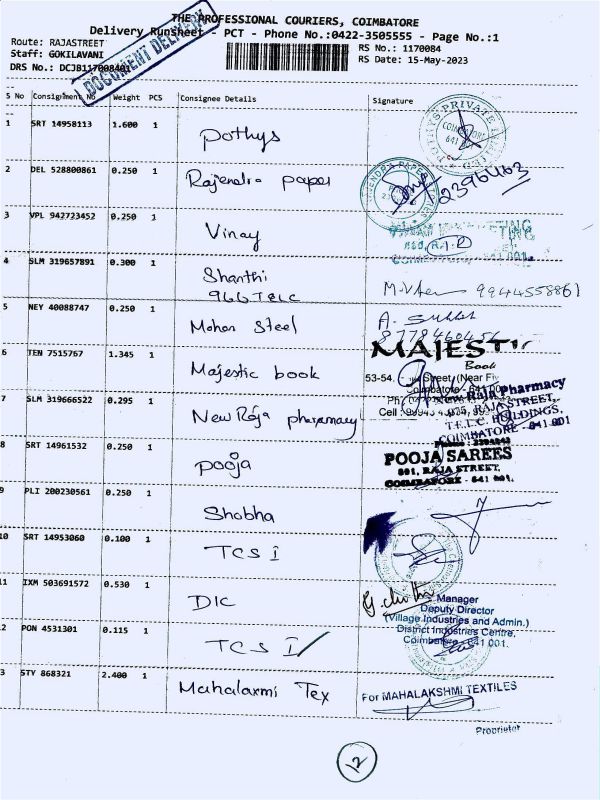 THE PROFESSIONAL COURIERS, COIMBATORE
Delivery Runsheet - PCT - Phone No.:0422-3505555 - Page No.:1
Route: RAJASTREET RS No.: 1170084
Staff: GOKILAVANI RS Date: 15-May-2023
DRS No.: DCJB1170084
DOCUMENT DELIVERY
S No Consignment No Weight PCS Consignee Details Signature
1 SRT 14958113 1.600 1 Pothys
2 DEL 528800861 0.250 1 Rajendra paper 2396463
3 VPL 942723452 0.250 1 Vinay
COIMBATORE 641 001.
4 SLM 319657891 0.300 1 Shanthi
966 TELC
9944558861
5 NEY 40088747 0.250 1 Mohan Steel
6 TEN 7515767 1.345 1 Majestic book
MAJESTI
Book
53-54, Street, (Near Fiv
Coimbatore - 641 001
7 SLM 319666522 0.295 1 New Raja pharamacy
New Raja Pharmacy
RAJA STREET,
T.E.L.C. BUILDINGS,
COIMBATORE - 641 001
8 SRT 14961532 0.250 1 pooja
POOJA SAREES
RAJA STREET,
COIMBATORE - 641 001.
9 PLI 200230561 0.250 1 Shobha
10 SRT 14953060 0.100 1 TCS I
11 IXM 503691572 0.530 1 DIC
Manager
Deputy Director
(Village Industries and Admin.)
District Industries Centre,
Coimbatore - 641 001.
2 PON 4531301 0.115 1 TCS I
3 STY 868321 2.400 1 Mahalaxmi Tex
For MAHALAKSHMI TEXTILES
Proprietor
12